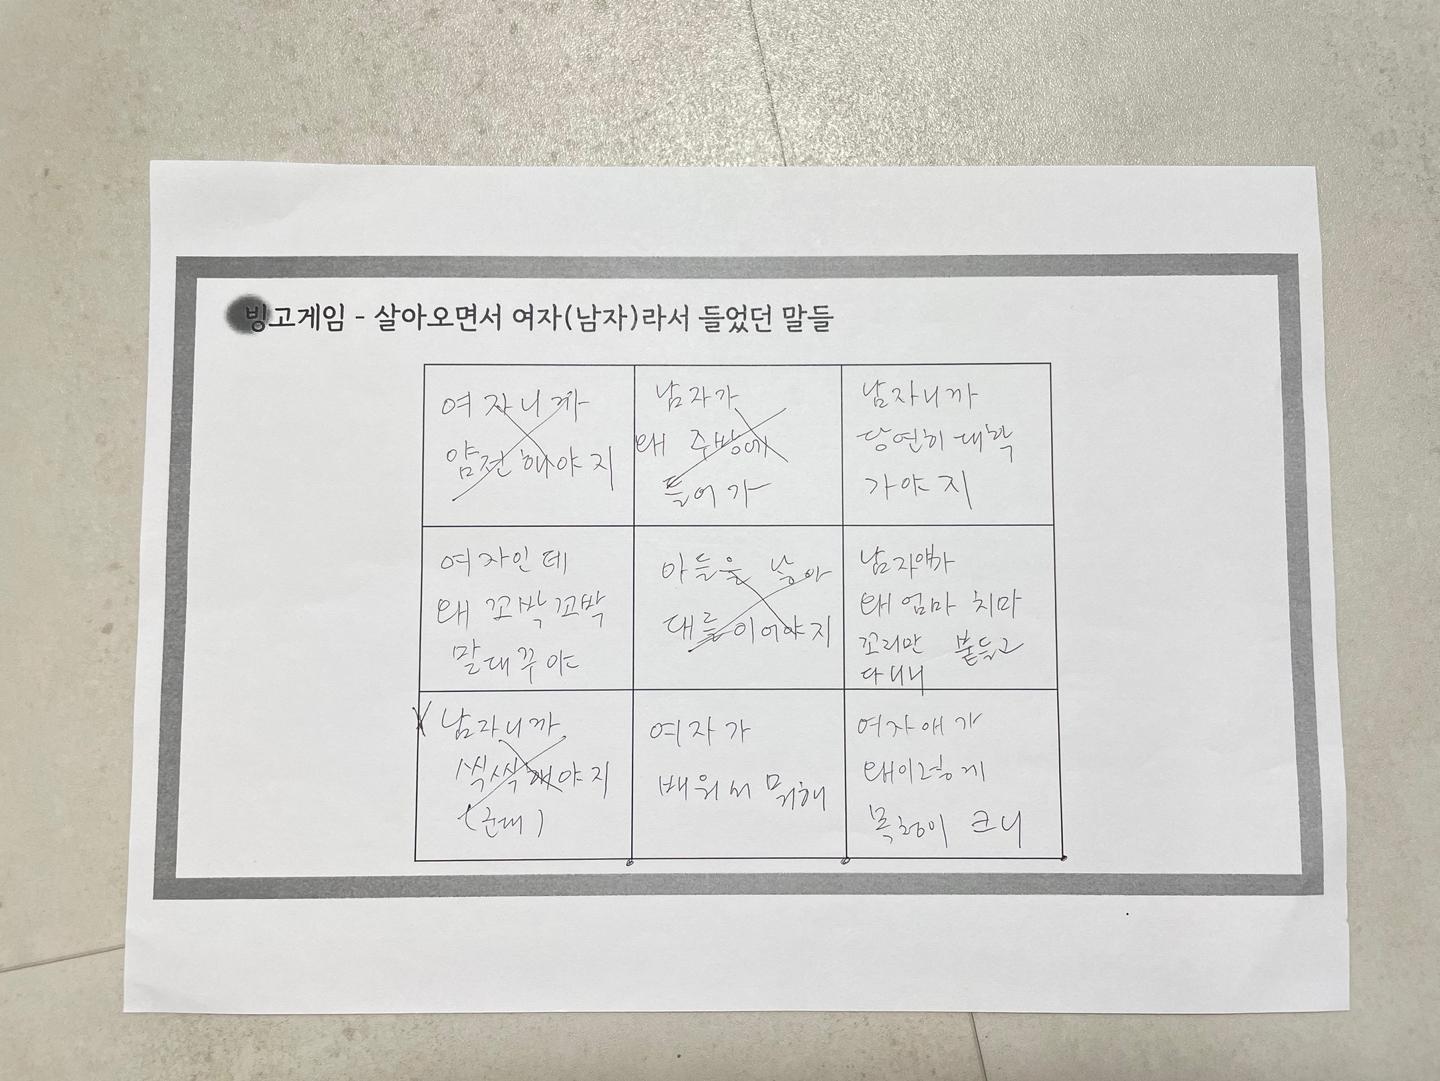 빙고게임 - 살아오면서 여자(남자)라서 들었던 말들
여자니까
얌전해야지
남자가
왜 주방에
들어가
남자니까
당연히 대학
가야지
여자인데
왜 꼬박꼬박
말대꾸야
아들을 낳아
대를 이어야지
남자애가
왜 엄마 치마
꼬리만 붙들고
다니니
남자니까
씩씩해야지
(군대)
여자가
배워서 뭐해
여자애가
왜이렇게
목청이 크니